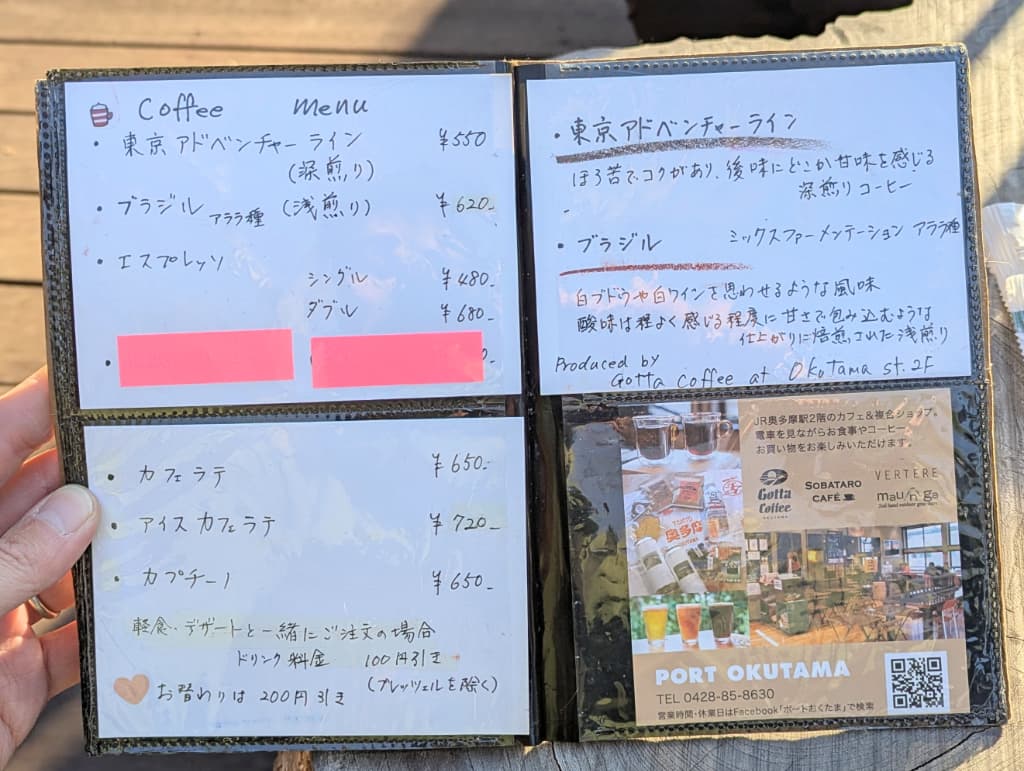 Coffee menu
・東京アドベンチャーライン ¥550
(深煎り)
・ブラジル アララ種 (浅煎り) ¥620-
・エスプレッソ
シングル ¥480-
ダブル ¥680-
・カフェラテ ¥650-
・アイスカフェラテ ¥720-
・カプチーノ ¥650-
軽食・デザートと一緒にご注文の場合
ドリンク料金 100円引き
(プレッツェルを除く)
お替わりは200円引き
・東京アドベンチャーライン
ほろ苦でコクがあり、後味にどこか甘味を感じる
深煎りコーヒー
・ブラジル ミックスファーメンテーション アララ種
白ブドウや白ワインを思わせるような風味
酸味は程よく感じる程度に甘さで包み込むような
仕上がりに焙煎された浅煎り
Produced by
Gotta coffee at Okutama st.2F
JR奥多摩駅2階のカフェ&複合ショップ。
電車を見ながらお食事やコーヒー、
お買い物をお楽しみいただけます。
Gotta
Coffee
SOBATARO
CAFÉ
VERTERE
maunga
奥多摩
PORT OKUTAMA
TEL 0428-85-8630
営業時間・休業日はFacebook「ポートおくたま」で検索